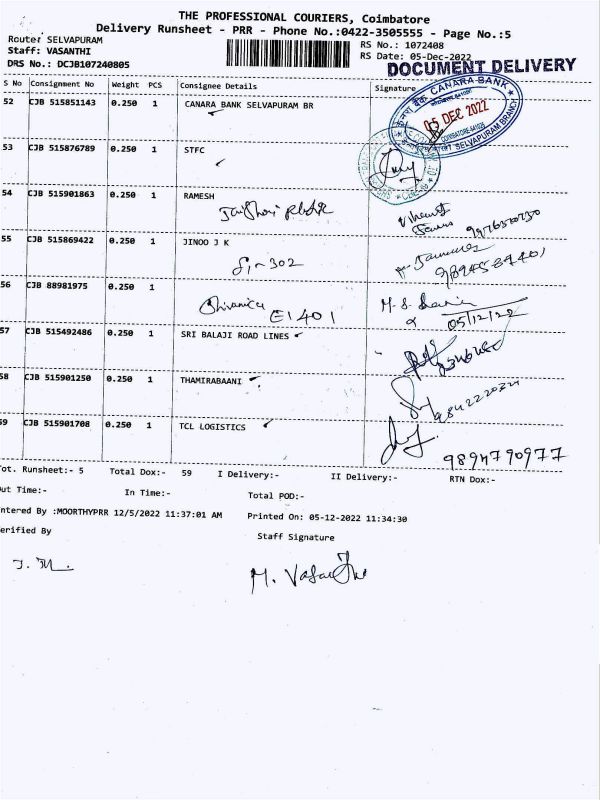 THE PROFESSIONAL COURIERS, Coimbatore
Delivery Runsheet - PRR - Phone No.:0422-3505555 - Page No.:5
Router SELVAPURAM
RS No.: 1072408
Staff: VASANTHI
RS Date: 05-Dec-2022
DRS No.: DCJB107240805
DOCUMENT DELIVERY
S No Consignment No Weight PCS Consignee Details Signature
CANARA BANK
05 DEC 2022
COIMBATORE-641026
SELVAPURAM BRANCH
52 CJB 515851143 0.250 1 CANARA BANK SELVAPURAM BR
53 CJB 515876789 0.250 1 STFC
54 CJB 515901863 0.250 1 RAMESH
55 CJB 515869422 0.250 1 JINOO J K
S1-302
9894589401
56 CJB 88981975 0.250 1
Shivanica E1401
M.S.
05/12/22
57 CJB 515492486 0.250 1 SRI BALAJI ROAD LINES
58 CJB 515901250 0.250 1 THAMIRABAANI
59 CJB 515901708 0.250 1 TCL LOGISTICS
9894790977
Tot. Runsheet:- 5 Total Dox:- 59 I Delivery:- II Delivery:- RTN Dox:-
Out Time:- In Time:- Total POD:-
Entered By :MOORTHYPRR 12/5/2022 11:37:01 AM Printed On: 05-12-2022 11:34:30
Verified By Staff Signature
M. Vasanthi